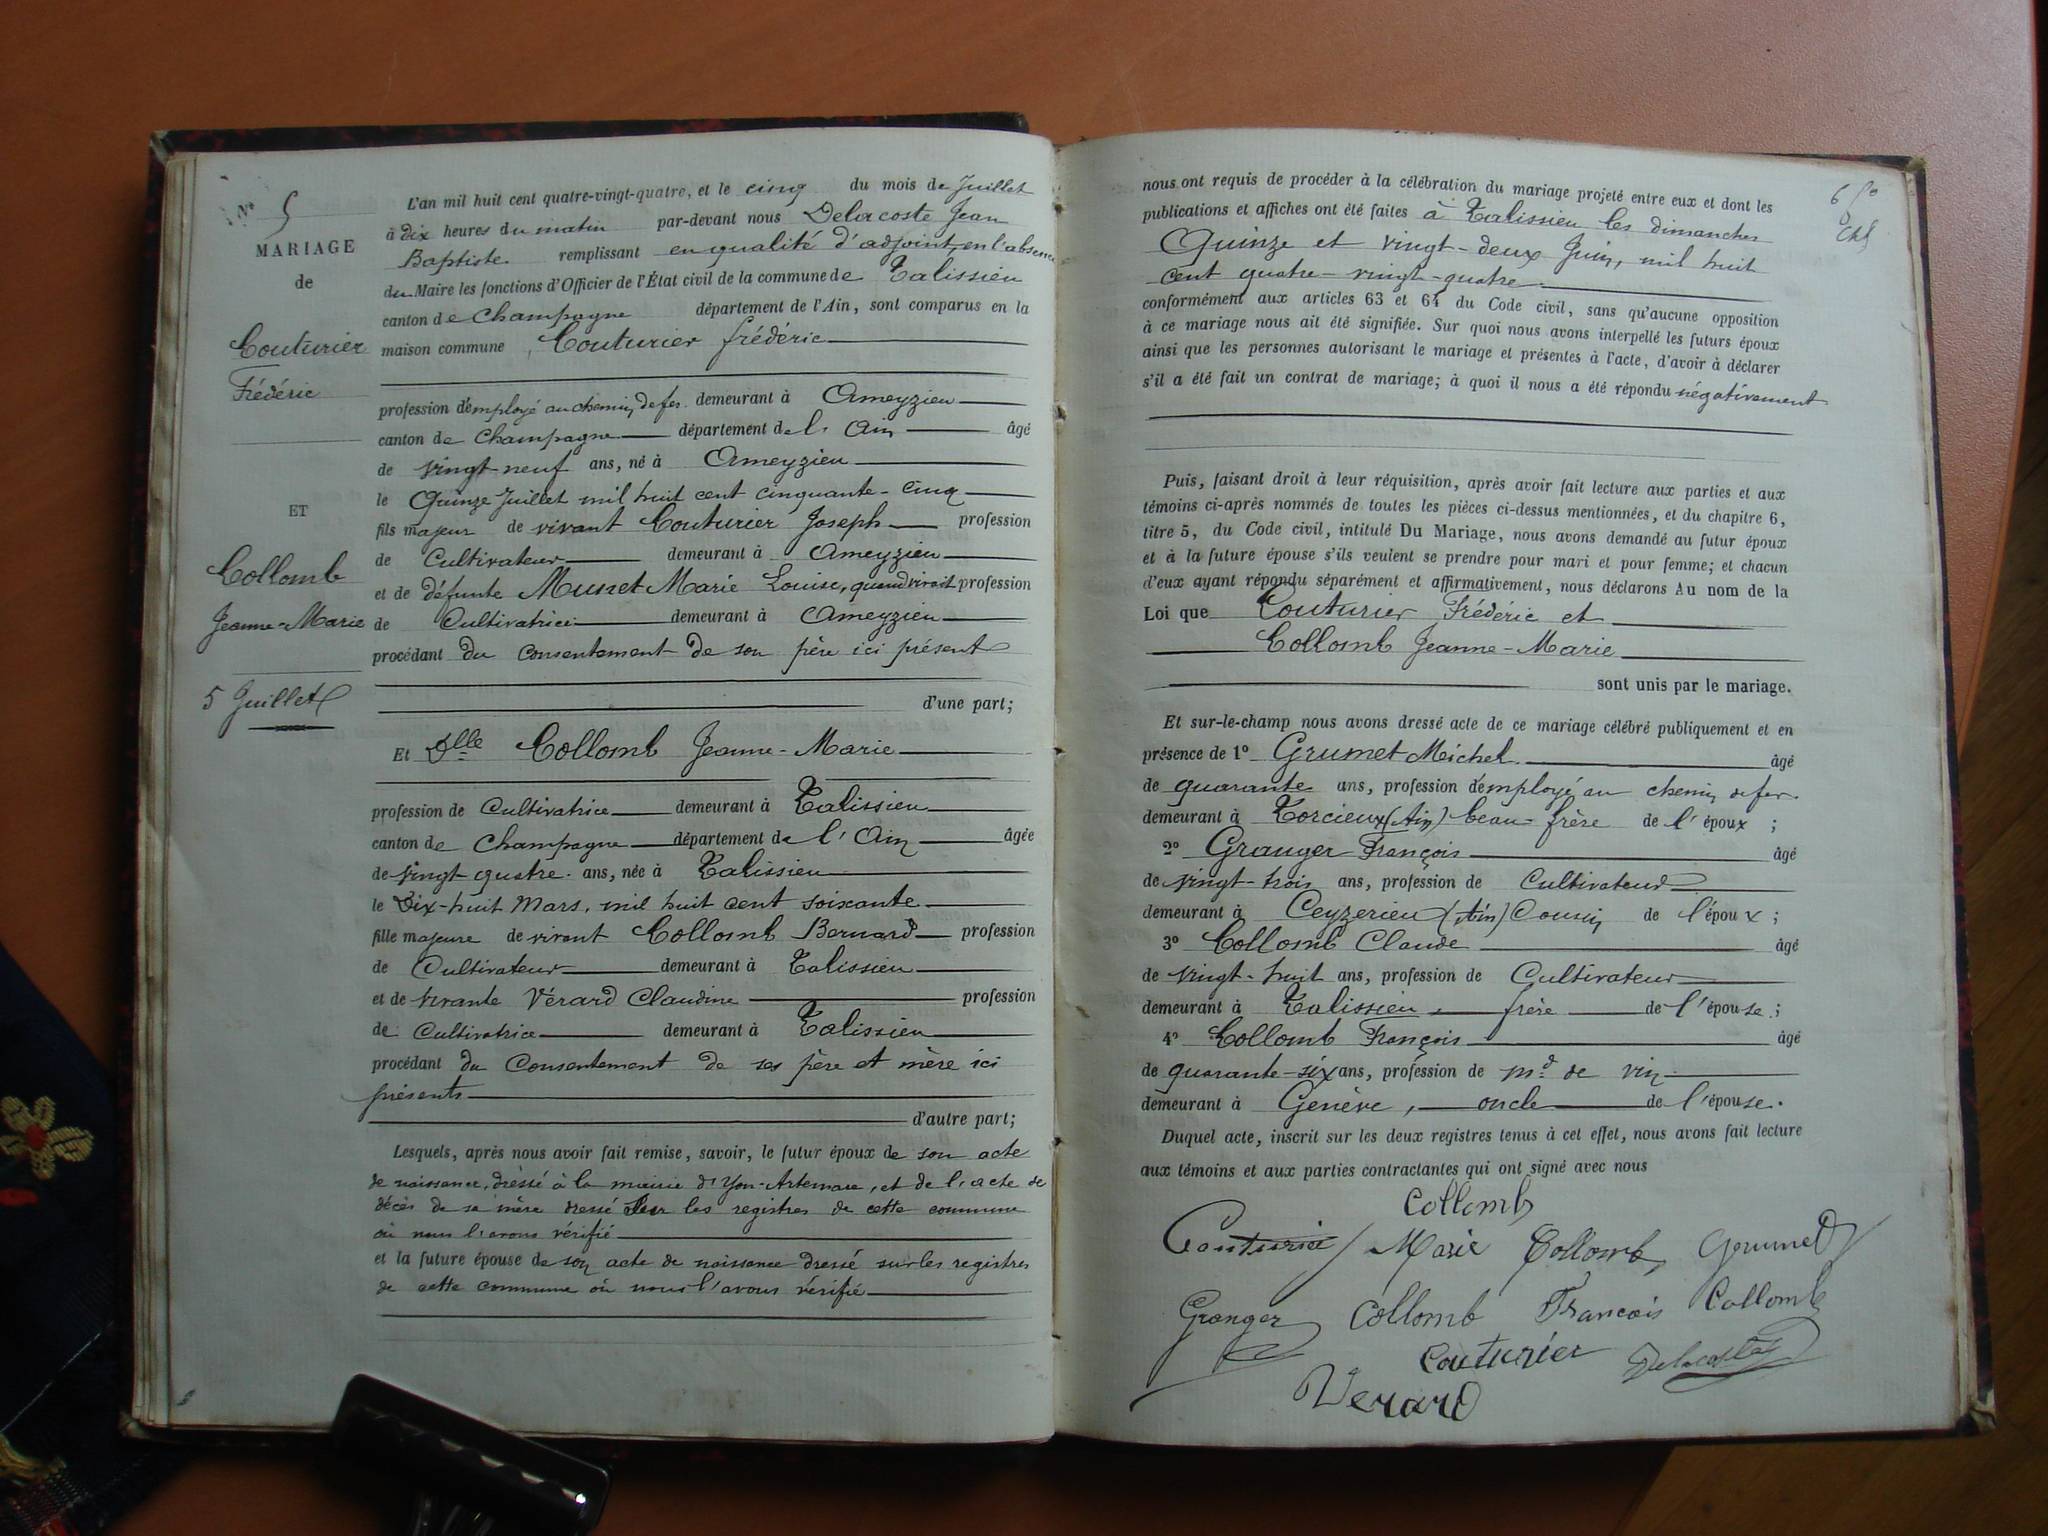 N° 5
MARIAGE
de
Couturier
Frédéric
ET
Collomb
Jeanne-Marie
5 Juillet
L'an mil huit cent quatre-vingt-quatre, et le cinq du mois de Juillet
à dix heures du matin par-devant nous Delacoste Jean
Baptiste remplissant en qualité d'adjoint, en l'absence
du Maire les fonctions d'Officier de l'État civil de la commune de Talissieu
canton de Champagne département de l'Ain, sont comparus en la
maison commune Couturier frédéric
profession d'employé au chemin de fer demeurant à Ameyzieu
canton de Champagne département de l'Ain âgé
de vingt-neuf ans, né à Ameyzieu
le Quinze Juillet mil huit cent cinquante-cinq
fils majeur de vivant Couturier Joseph profession
de Cultivateur demeurant à Ameyzieu
et de défunte Musset Marie Louise, quand vivait profession
de Cultivatrice demeurant à Ameyzieu
procédant du consentement de son père ici présent
d'une part;
Et Dlle Collomb Jeanne-Marie
profession de Cultivatrice demeurant à Talissieu
canton de Champagne département de l'Ain âgée
de vingt quatre ans, née à Talissieu
le Dix-huit Mars, mil huit cent soixante
fille majeure de vivant Collomb Bernard profession
de Cultivateur demeurant à Talissieu
et de vivante Vérard Claudine profession
de Cultivatrice demeurant à Talissieu
procédant du Consentement de ses père et mère ici
présents
d'autre part;
Lesquels, après nous avoir fait remise, savoir, le futur époux de son acte
de naissance, dressé à la mairie d'Yon-Artemare, et de l'acte de
décès de sa mère dressé sur les registres de cette commune
où nous l'avons vérifié
et la future épouse de son acte de naissance dressé sur les registres
de cette commune où nous l'avons vérifié
nous ont requis de procéder à la célébration du mariage projeté entre eux et dont les
publications et affiches ont été faites à Talissieu les dimanches
Quinze et vingt-deux Juin, mil huit
cent quatre-vingt-quatre
conformément aux articles 63 et 64 du Code civil, sans qu'aucune opposition
à ce mariage nous ait été signifiée. Sur quoi nous avons interpellé les futurs époux
ainsi que les personnes autorisant le mariage et présentes à l'acte, d'avoir à déclarer
s'il a été fait un contrat de mariage; à quoi il nous a été répondu négativement
Puis, faisant droit à leur réquisition, après avoir fait lecture aux parties et aux
témoins ci-après nommés de toutes les pièces ci-dessus mentionnées, et du chapitre 6,
titre 5, du Code civil, intitulé Du Mariage, nous avons demandé au futur époux
et à la future épouse s'ils veulent se prendre pour mari et pour femme; et chacun
d'eux ayant répondu séparément et affirmativement, nous déclarons Au nom de la
Loi que Couturier Frédéric et
Collomb Jeanne-Marie
sont unis par le mariage.
Et sur-le-champ nous avons dressé acte de ce mariage célébré publiquement et en
présence de 1° Grumet Michel âgé
de quarante ans, profession d'employé au chemin de fer
demeurant à Torcieux (Ain) beau-frère de l'époux ;
2° Granger François âgé
de vingt-trois ans, profession de Cultivateur
demeurant à Ceyzerieu (Ain) Cousin de l'époux ;
3° Collomb Claude âgé
de vingt-huit ans, profession de Cultivateur
demeurant à Talissieu, frère de l'épouse ;
4° Collomb François âgé
de quarante-six ans, profession de md de vin
demeurant à Genève, oncle de l'épouse.
Duquel acte, inscrit sur les deux registres tenus à cet effet, nous avons fait lecture
aux témoins et aux parties contractantes qui ont signé avec nous
Collomb
Couturier Marie Collomb Grumet
Granger Collomb François Collomb
Couturier Delacoste
Verard